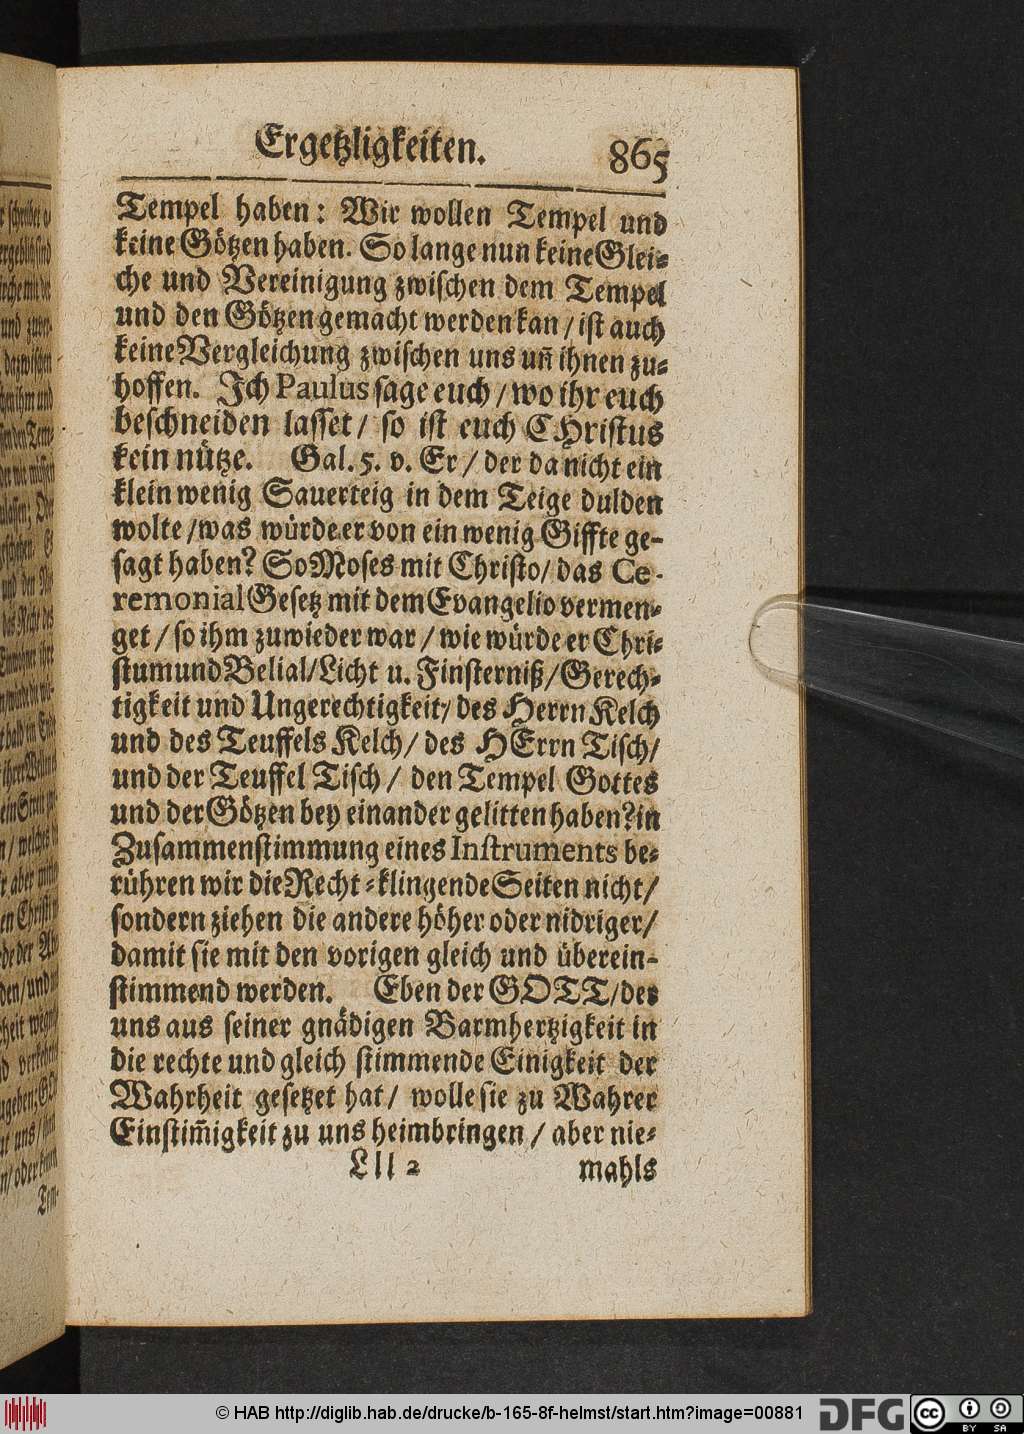 Ergetzligkeiten. 865
Tempel haben: Wir wollen Tempel und
keine Götzen haben. So lange nun keine Glei⸗
che und Vereinigung zwischen dem Tempel
und den Götzen gemacht werden kan / ist auch
keine Vergleichung zwischen uns uñ ihnen zu⸗
hoffen. Ich Paulus sage euch / wo ihr euch
beschneiden lasset / so ist euch CHristus
kein nütze. Gal. 5. v. Er / der da nicht ein
klein wenig Sauerteig in dem Teige dulden
wolte / was würde er von ein wenig Giffte ge-
sagt haben? So Moses mit Christo / das Ce-
remonial Gesetz mit dem Evangelio vermen⸗
get / so ihm zuwieder war / wie würde er Chri⸗
stum und Belial / Licht u. Finsterniß / Gerech⸗
tigkeit und Ungerechtigkeit / des Herrn Kelch
und des Teuffels Kelch / des HErrn Tisch /
und der Teuffel Tisch / den Tempel Gottes
und der Götzen bey einander gelitten haben? in
Zusammenstimmung eines Instruments be⸗
rühren wir die Recht⸗klingende Seiten nicht /
sondern ziehen die andere höher oder nidriger /
damit sie mit den vorigen gleich und überein-
stimmend werden. Eben der GOTT / der
uns aus seiner gnädigen Barmhertzigkeit in
die rechte und gleich stimmende Einigkeit der
Wahrheit gesetzet hat / wolle sie zu Wahrer
Einstim̃igkeit zu uns heimbringen / aber nie⸗
Lll 2 mahls
© HAB http://diglib.hab.de/drucke/b-165-8f-helmst/start.htm?image=00881
DFG
cc BY SA